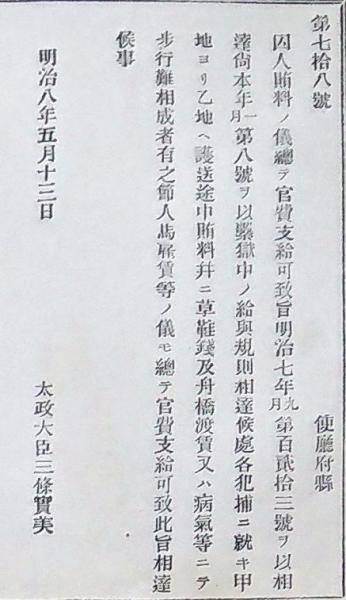 第七拾八號
使廳府縣
囚人賄料ノ儀總テ官費支給可致旨明治七年九月第百貳拾三號ヲ以相
達尙本年一月第八號ヲ以繫獄中ノ給與規則相達候處各犯捕ニ就キ甲
地ヨリ乙地ヘ護送途中賄料幷ニ草鞋錢及舟橋渡賃又ハ病氣等ニテ
步行難相成者有之節人馬雇賃等ノ儀モ總テ官費支給可致此旨相達
候事
明治八年五月十三日
太政大臣三條實美